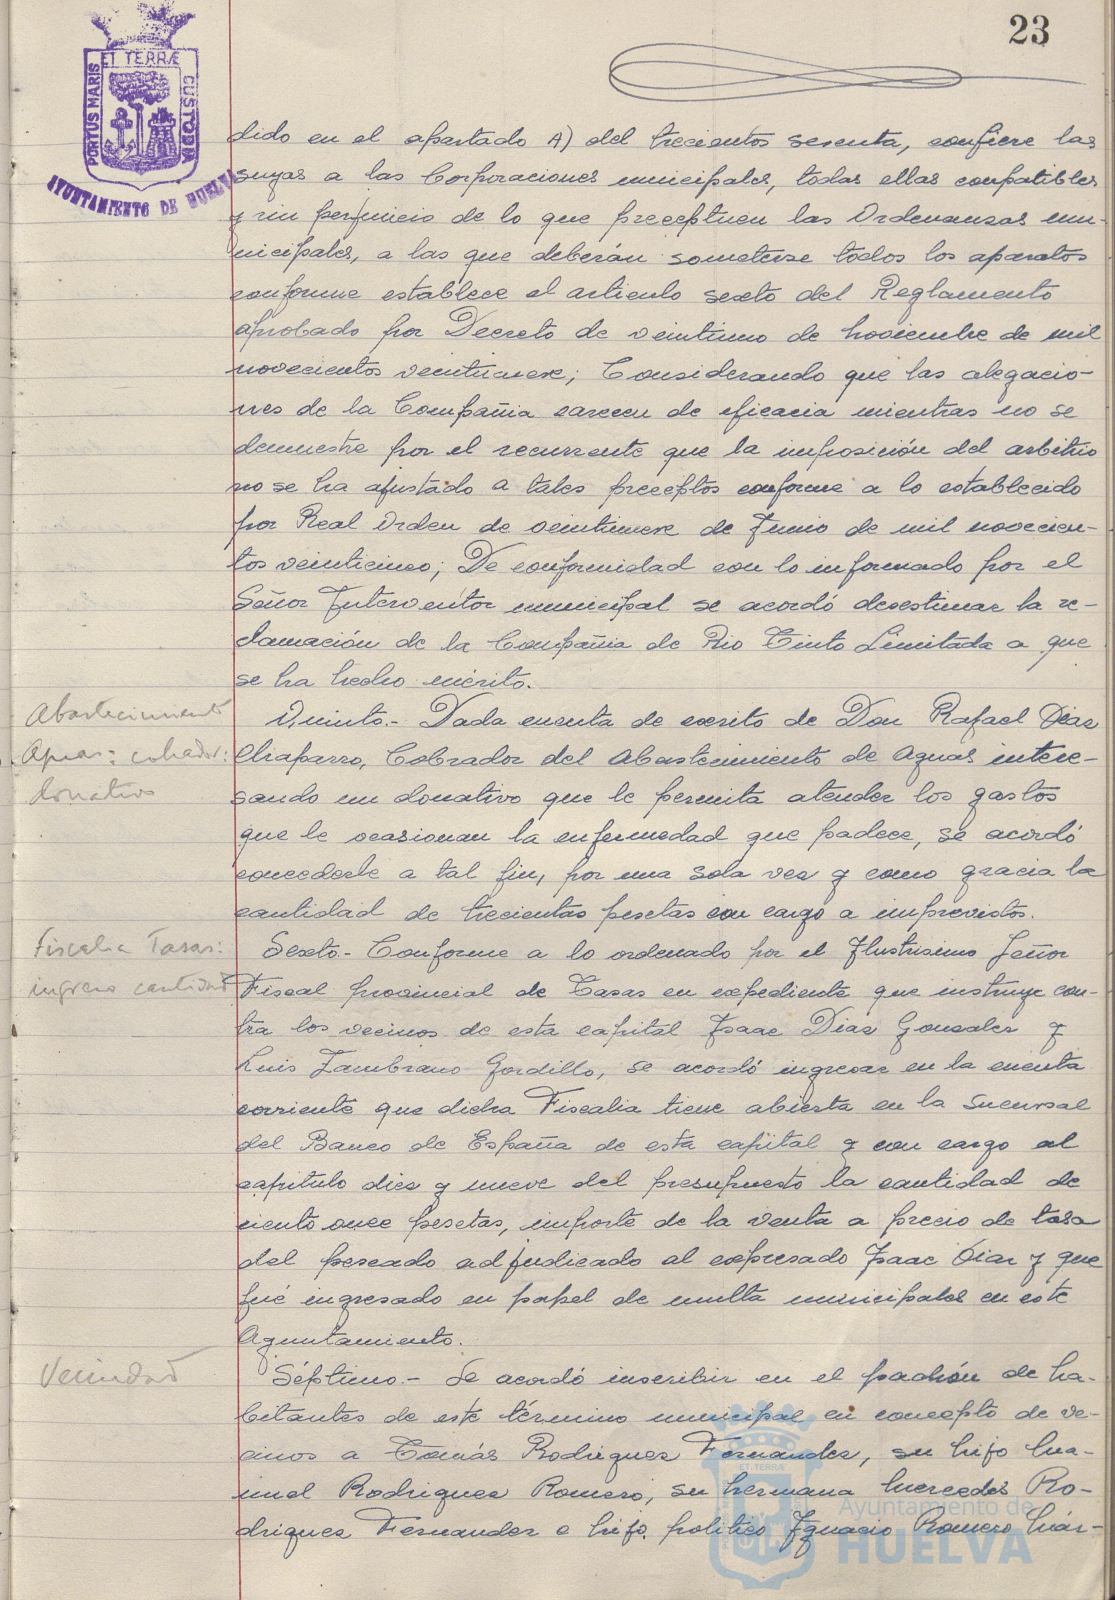 23
ET TERRÆ
PORTUS MARIS
CUSTODIA
AYUNTAMIENTO DE HUELVA
dido en el apartado A) del trecientos sesenta, confiere las
suyas a las Corporaciones municipales, todas ellas compatibles
y sin perjuicio de lo que preceptuen las Ordenanzas mu-
nicipales, a las que deberán someterse todos los aparatos
conforme establece el articulo sexto del Reglamento
aprobado por Decreto de veintiuno de noviembre de mil
novecientos veintinueve; Considerando que las alegacio-
nes de la Compañia carecen de eficacia mientras no se
demuestre por el recurrente que la imposición del arbitrio
no se ha ajustado a tales preceptos conforme a lo establecido
por Real Orden de veintinueve de Junio de mil novecien-
tos veinticinco; De conformidad con lo informado por el
Señor Interventor municipal se acordó desestimar la re-
clamación de la Compañia de Rio Tinto Limitada a que
se ha hecho mérito.
Abastecimiento
Aguas: cobrador:
donativo
Quinto.- Dada cuenta de escrito de Don Rafael Diaz
Chaparro, Cobrador del Abastecimiento de Aguas intere-
sando un donativo que le permita atender los gastos
que le ocasionan la enfermedad que padece, se acordó
concederle a tal fin, por una sola vez y como gracia la
cantidad de trecientas pesetas con cargo a imprevistos.
Fiscalia Tasas:
ingreso cantidad
Sexto.- Conforme a lo ordenado por el Ilustrisimo Señor
Fiscal provincial de Tasas en expediente que instruye con-
tra los vecinos de esta capital Isaac Diaz Gonzalez y
Luis Zambrano Gordillo, se acordó ingresar en la cuenta
corriente que dicha Fiscalia tiene abierta en la Sucursal
del Banco de España de esta capital y con cargo al
capitulo diez y nueve del presupuesto la cantidad de
ciento once pesetas, importe de la venta a precio de tasa
del pescado adjudicado al expresado Isaac Diaz y que
fué ingresado en papel de multa municipales en este
Ayuntamiento.
Vecindad
Séptimo.- Se acordó inscribir en el padrón de ha-
bitantes de este término municipal en concepto de ve-
cinos a Tomás Rodriguez Fernandez, su hijo Ma-
nuel Rodriguez Romero, su hermana Mercedes Ro-
driguez Fernandez e hijo politico Ignacio Romero Már-
Ayuntamiento de
HUELVA